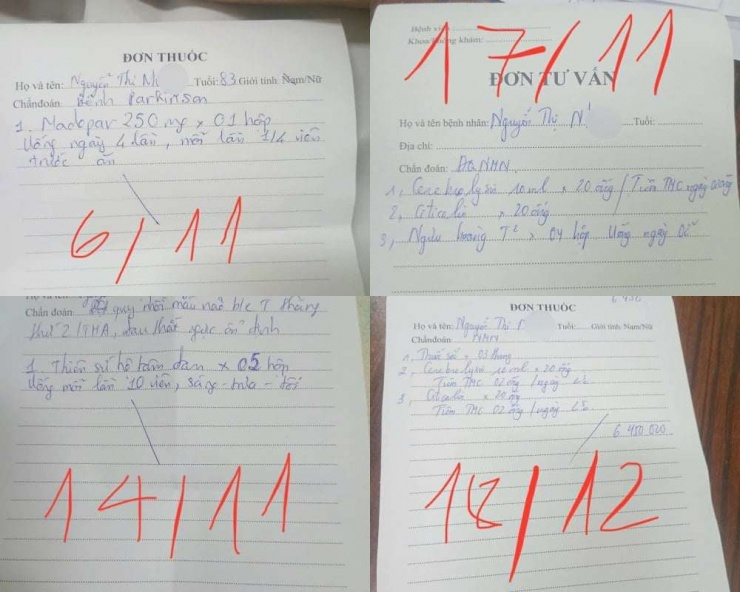 ĐƠN THUỐC
Họ và tên: Nguyễn Thị M Tuổi: 83 Giới tính: Nam/Nữ
Chẩn đoán: Bệnh Parkinson
1. Madopar 250 mg x 01 hộp
Uống ngày 4 lần, mỗi lần 1/4 viên
trước ăn
6/11
Bệnh viện
Khoa/Phòng khám:
17/11
ĐƠN TƯ VẤN
Họ và tên bệnh nhân: Nguyễn Thị N Tuổi:
Địa chỉ:
Chẩn đoán: NMN
1, Cerebrolysin 10 ml x 20 ống / Tiêm TMC ngày ống
2, Citicolin x 20 ống
3, Ngưu hoàng x 04 hộp uống ngày
Chẩn đoán nhồi máu não b/c T tháng
thứ 2 / THA, đau thắt ngực ổn định
1. Thiên sứ hộ tâm đan x 05 hộp
Uống mỗi lần 10 viên, sáng - trưa - tối
14/11
ĐƠN THUỐC
Họ và tên: Nguyễn Thị N Tuổi: Giới tính: Nam/Nữ
Chẩn đoán: NMN
1, Thuốc x 03 thang
2, Cerebrolysin 10 ml x 20 ống
Tiêm TMC 02 ống / ngày
3, Citicolin x 20 ống
Tiêm TMC 02 ống / ngày
6.450.000
18/12